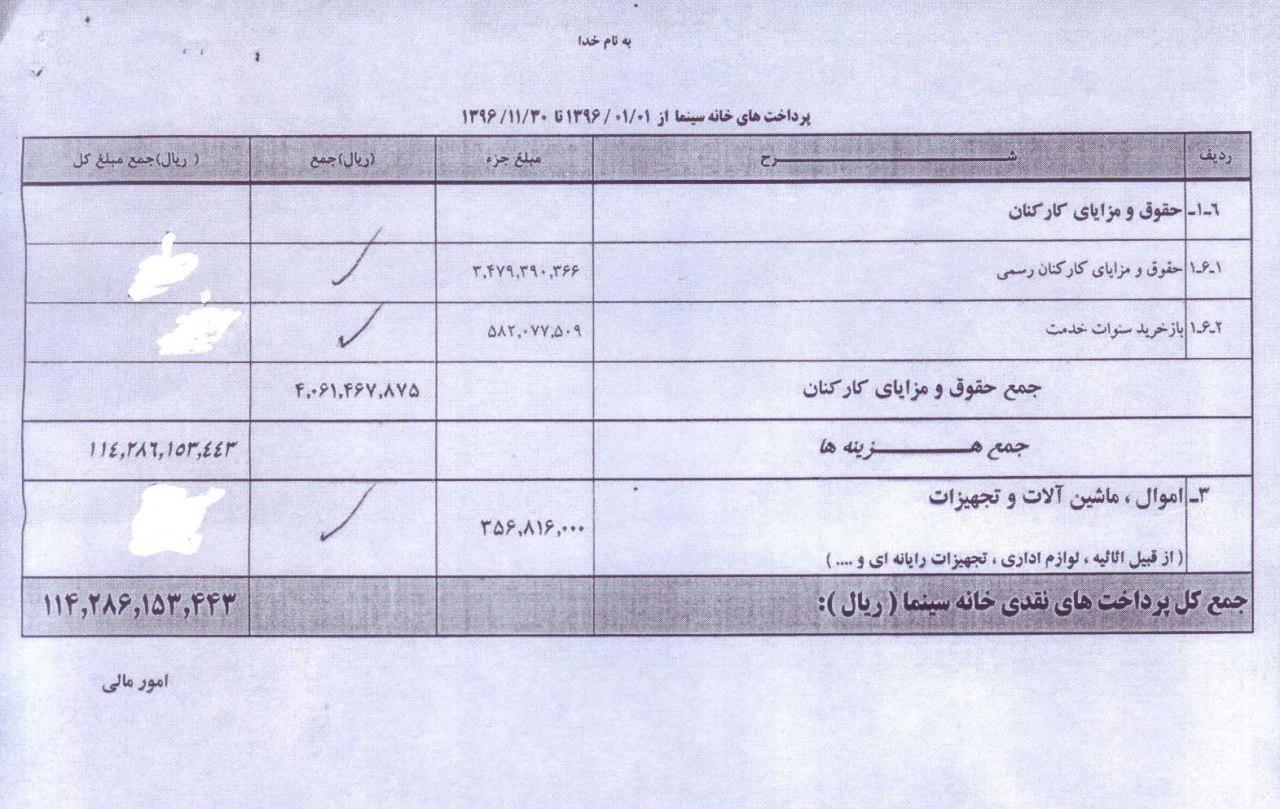 به نام خدا
پرداخت های خانه سینما از ۱۳۹۶/۰۱/۰۱ تا ۱۳۹۶/۱۱/۳۰
ردیف شـــــــرح مبلغ جزء (ریال)جمع (ریال)جمع مبلغ کل
۶ـ۱ـ حقوق و مزایای کارکنان
۱ـ۶ـ۱ حقوق و مزایای کارکنان رسمی ۳,۴۷۹,۳۹۰,۳۶۶
۲ـ۶ـ۱ بازخرید سنوات خدمت ۵۸۲,۰۷۷,۵۰۹
جمع حقوق و مزایای کارکنان ۴,۰۶۱,۴۶۷,۸۷۵
جمع هـــــزینه ها ۱۱۴,۲۸۶,۱۵۳,۴۴۳
۳ـ اموال ، ماشین آلات و تجهیزات ۳۵۶,۸۱۶,۰۰۰
( از قبیل اثاثیه ، لوازم اداری ، تجهیزات رایانه ای و .... )
جمع کل پرداخت های نقدی خانه سینما ( ریال ): ۱۱۴,۲۸۶,۱۵۳,۴۴۳
امور مالی